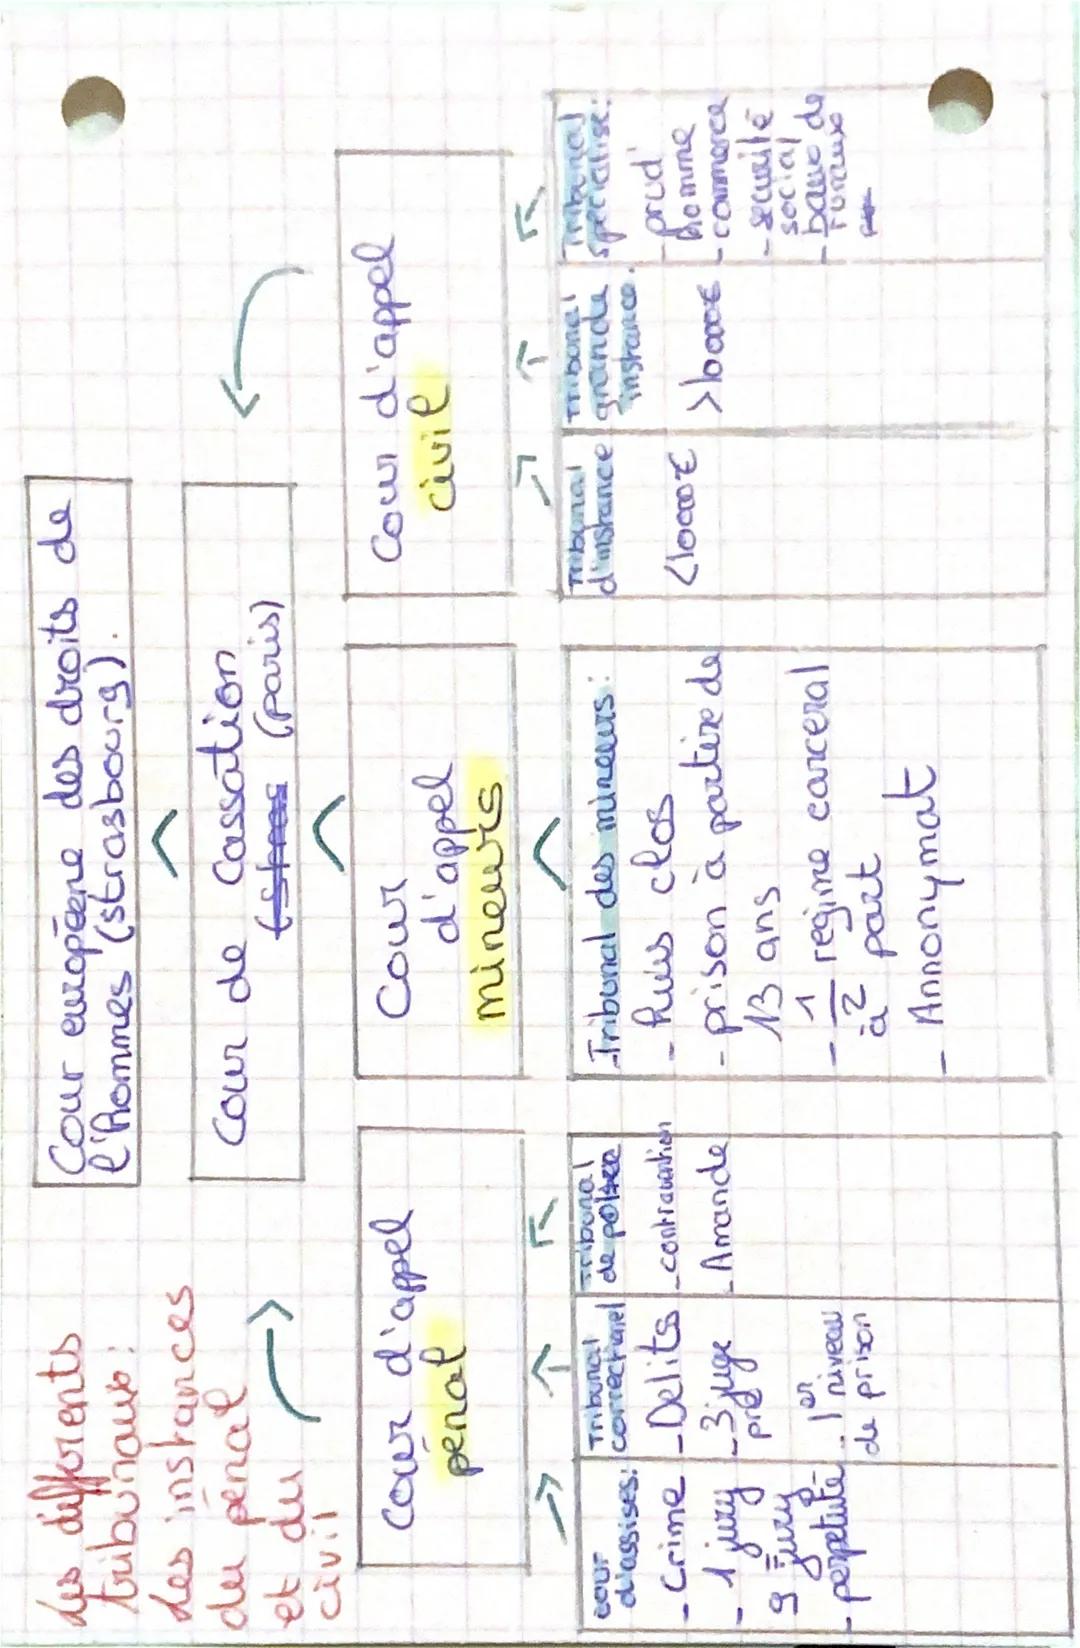 Les différents
tribunaux :
Les instances
du pénal
et du
civil
Cour européene des droits de
l'hommes (strasbourg).
Cour de Cassation
(paris)
Cour d'appel
pénal
Cour
d'appel
mineurs
Cour d'appel
civil
cour
d'assises:
- Crime
- 1 jury
9 jury
- perpetuité
Tribunal
correctionel
- Delits
- 3 juge
pro
. 1er niveau
de prison
Tribunal
de police
- contravention
- Amande
- Tribunal des mineurs:
- huis clos
- prison à partire de
13 ans
- 1/2 régime carceral
à part
- Annonymat
Tribunal
d'instance
<10000€
Tribunal
grande
instance.
>10000€
Tribunal
spécialisé:
- prud'
homme
- commerce
- sécurité
social
- baux de
ruraux